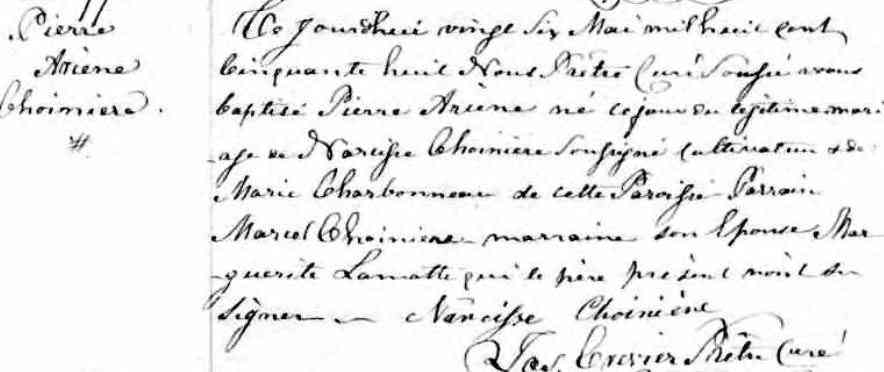 Pierre
Ariène
Choiniere.
Ce jourdhui vingt six Mai mil huit cent
Cinquante huit Nous Prêtre Curé Sousigné avons
baptisé Pierre Ariène né ce jour du légitime mari
age de Narcisse Choiniere Sousigné Cultivateur & de
Marie Charbonneau de cette Paroisse Parrain
Marcel Choiniere marraine son Epouse Mar
guerite Lamotte qui le père présent n'ont su
signer Narcisse Choinière
Jos. Crevier Ptre Curé